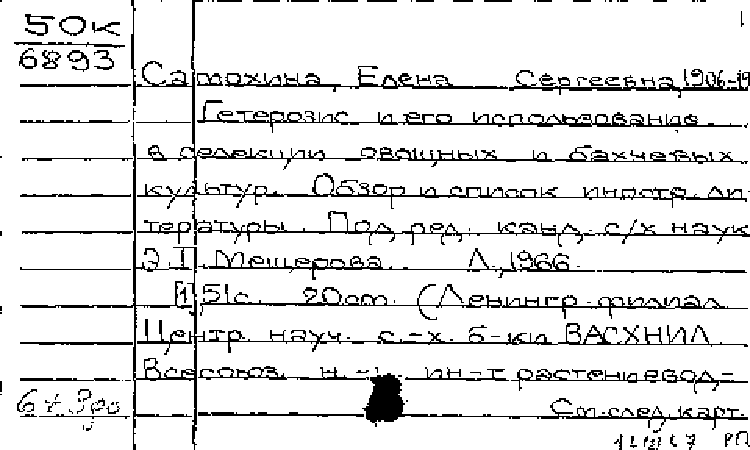 50к
6893
Самохина, Елена Сергеевна, 1906-19
Гетерозис и его использование
в селекции овощных и бахчевых
культур. Обзор и список иностр. ли-
тературы. Под ред. канд. с/х наук
Мещерова. Л., 1966.
51с. 20см. (Ленингр. филиал
Центр. науч. с.-х. б-ки ВАСХНИЛ.
Всесоюз. н.-и. ин-т растениевод-
См. след. карт.